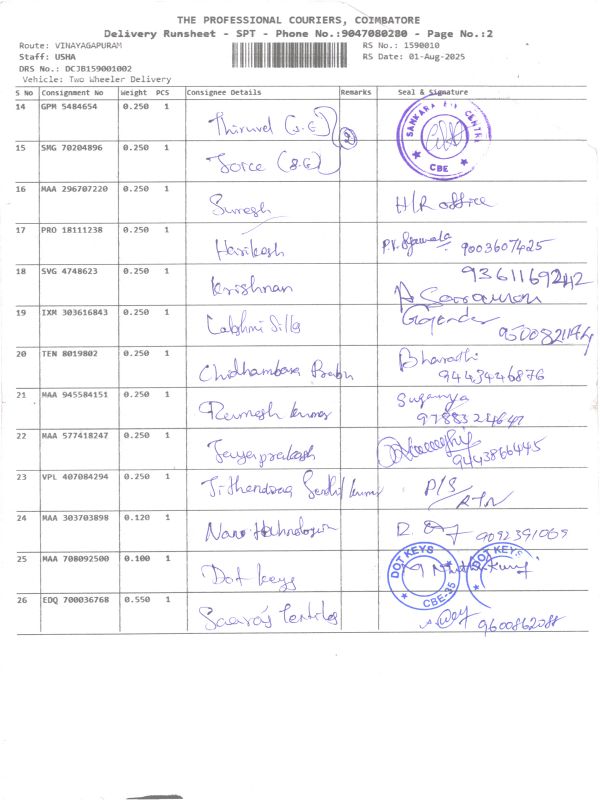 THE PROFESSIONAL COURIERS, COIMBATORE
Delivery Runsheet - SPT - Phone No.:9047080280 - Page No.:2
Route: VINAYAGAPURAM RS No.: 1590010
Staff: USHA RS Date: 01-Aug-2025
DRS No.: DCJB159001002
Vehicle: Two Wheeler Delivery
S No Consignment No Weight PCS Consignee Details Remarks Seal & Signature
14 GPM 5484654 0.250 1 Thiruvel (S.E) 2 SANKARA CENTRE CBE
15 SMG 70204896 0.250 1 Force (S.E)
16 MAA 296707220 0.250 1 Suresh H/R office
17 PRO 18111238 0.250 1 Harikesh P.V. 9003607425
18 SVG 4748623 0.250 1 Krishnan 9361169242
19 IXM 303616843 0.250 1 Lakshmi 9500821174
20 TEN 8019802 0.250 1 Chidhambara Prabu Bharathi 9443446876
21 MAA 945584151 0.250 1 Ramesh kumar Suganya 9788324647
22 MAA 577418247 0.250 1 Jeyaprakash 9443866445
23 VPL 407084294 0.250 1 Jithendraa Senthil kumar P/S RTN
24 MAA 303703898 0.120 1 Nano Technologies 9092391069
25 MAA 708092500 0.100 1 Dot keys DOT KEYS CBE-35 DOT KEYS
26 EDQ 700036768 0.550 1 9600862088